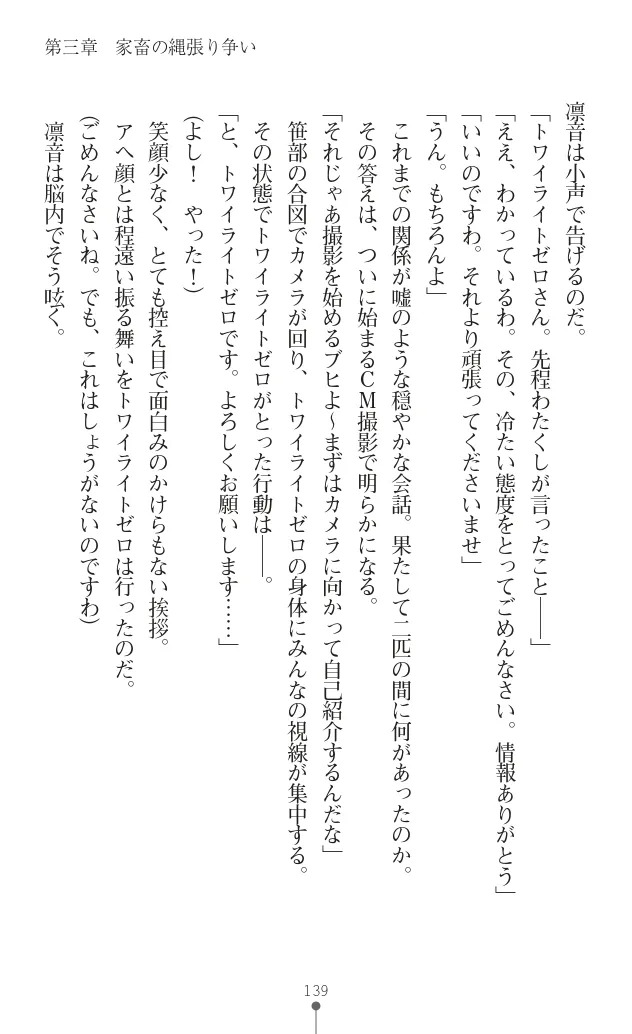 第三章　家畜の縄張り争い
凛音は小声で告げるのだ。
「トワイライトゼロさん。先程わたくしが言ったこと――」
「ええ、わかっているわ。その、冷たい態度をとってごめんなさい。情報ありがとう」
「いいのですわ。それより頑張ってくださいませ」
「うん。もちろんよ」
これまでの関係が嘘のような穏やかな会話。果たして二匹の間に何があったのか。
その答えは、ついに始まるＣＭ撮影で明らかになる。
「それじゃあ撮影を始めるブヒよ～まずはカメラに向かって自己紹介するんだな」
笹部の合図でカメラが回り、トワイライトゼロの身体にみんなの視線が集中する。
その状態でトワイライトゼロがとった行動は――。
「と、トワイライトゼロです。よろしくお願いします……」
（よし！　やった！）
笑顔少なく、とても控え目で面白みのかけらもない挨拶。
アヘ顔とは程遠い振る舞いをトワイライトゼロは行ったのだ。
（ごめんなさいね。でも、これはしょうがないのですわ）
凛音は脳内でそう呟く。
139